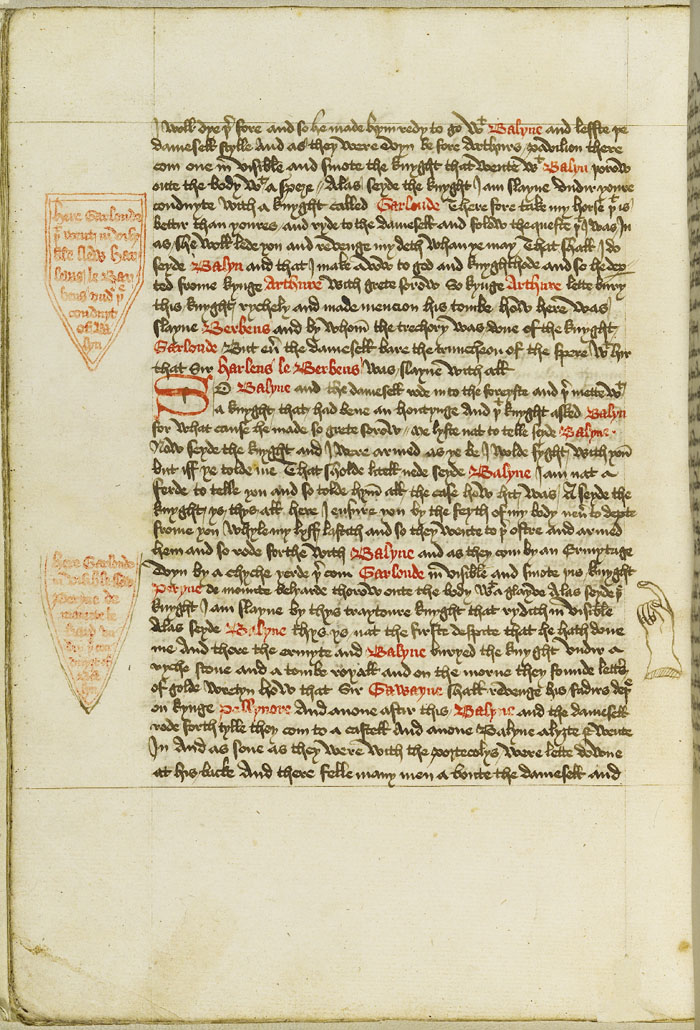 I woll dye þer fore and so he made hym redy to go wt Balyne and leffte þe
damesell stylle And as they were evyn be fore Arthurs pavilion there
com one in visible and smote the knyght that wente wt Balyn þorow
oute the body wt a spere / Alas seyde the knyght I am slayne undir youre
conduyte with a knyght called Garlonde There fore take my horse þt is
bettir than youres and ryde to the damesell and folow the queste þt I was In
as she woll lede you and revenge my deth whan ye may That shall I do
seyde Balyn and that I make a vow to god and knyghthode and so he dep
ted frome kynge Arthure with grete sorow So kynge Arthure lette bury
this knyght rychely and made mencion his tombe how here was
slayne Berbeus and by whom the trechory was done of the knyght
Garlonde But eu the damesell bare the truncheon of the spere wt hir
that Sir harleus le Berbeus was slayne with all
SO Balyne and the damesell rode in to the foreyste and þer mette wt
a knyght that had bene an hontynge And þt knyght asked Balyn
for what cause he made so grete sorow / me lyste nat to telle seyde Balyne
Now seyde the knyght and I were armed as ye be I wolde fyght with you
but iff ye tolde me That sholde litell nede seyde Balyne I am nat a
ferde to telle you and so tolde hym all the case how hit was A seyde the
knyght ys thys all here I ensure you by the feyth of my body neu to depte
frome you whyle my lyff lastith and so they wente to þer ostre and armed
hem and so rode forthe with Balyne and as they com by an Ermytage
evyn by a chyche yerde þer com Garlonde in visible and smote þis knyght
Peryne de mounte belyarde thorow oute the body wt a glayve Alas seyde þe
knyght I am slayne by thys traytoure knyght that rydith in visible
Alas seyde Balyne thys ys nat the firste despite that he hath done
me And there the ermyte and Balyne buryed the knyght undir a
ryche stone and a tombe royall and on the morne they founde letts
of golde wretyn how that Sir Gawayne shall revenge his fadirs deþ
on kynge Pellynore And anone aftir this Balyne and the damesell
rode forth tylle they com to a castell and anone Balyne alyzte & wente
In And as sone as they were with the portecolys were lette downe
at his backe And there felle many men a boute the damesell and
here Garlonde
þt went in visy
ble slew har
leus le Ber
beus undir þe
conduyt
of Ba
lyn
here Garlonde
in visible slew
Peryne de
mounte be